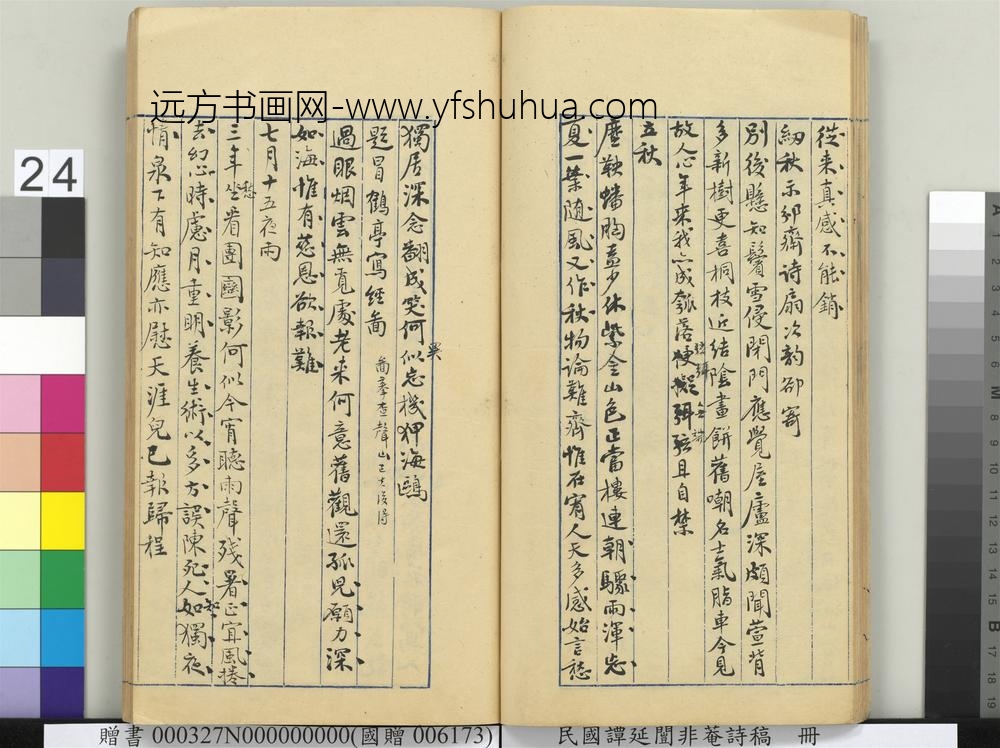 远方书画网-www.yfshuhua.com
從来真感不能銷
紉秋示邠齋诗扇次韵卻寄
別後懸知鬢雪侵閉門應覺屋廬深頗聞萱背
多新樹更喜桐枝近結陰畫餅舊嘲名士氣脂車今見
故人心年来我亦成瓠落 且自禁
立秋
塵鞅蟠胸盍少休紫金山色正當樓連朝驟雨渾忘
夏一葉随風又作秋物論難齊惟石宥人天多感始言愁
獨居深念翻成笑何似忘機狎海鷗
題冒鶴亭寫經圖
過眼烟雲無覓處老来何意舊觀還孤兒願力深
如海惟有慈恩欲報難
七月十五夜雨
三年坐看團圞影何似今宵聽雨聲残暑正宜風捲
愁
去幻心時慮月重明養生術以多方誤陳死人如獨夜
知
情泉下有知應亦慰天涯兒已報歸程
24
贈書 000327N000000000(國贈 006173)
民國譚延闓非菴詩稿 冊